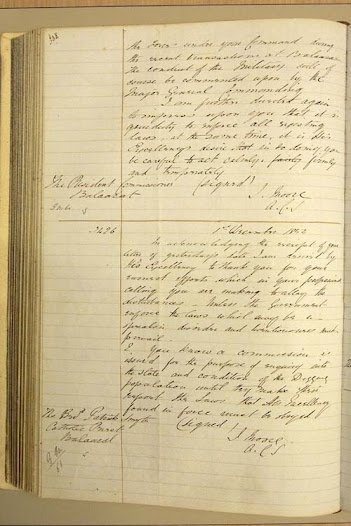 the Force under your Command during
the recent transactions at Ballaarat
the conduct of the Military will of
course be commented upon by the
Major General Commanding
I am further directed again
to impress upon you that it is
to all existing
laws, at the same time, it is His
Excellency's desire that in so doing you
be careful to act calmly, firmly
and temporately
The Resident Commissioner (signed)
Ballaarat J. Moore
A.C.S
1st December
In acknowledging the receipt of your
letter of yesterday's date I am directed by
His Excellency to thank you for your
earnest efforts which in your professional
calling you are making to allay the
disturbances. Unless the Government
enforce the laws which may be in
operation, disorder and licentiousness must
prevail
2. You know a commission is
issued for the purpose of enquiry into
the state and condition of the Digging
population until they make their
report the Laws that His Excellency
found in force must be obeyed
The Revd Patrick Smyth (signed)
Catholic Priest J. Moore
Ballaarat A.C.S